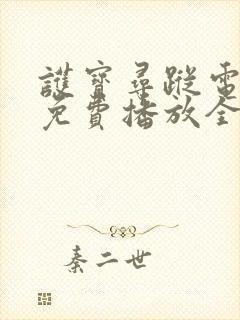 護寶尋蹤電
免費播放全
秦二世